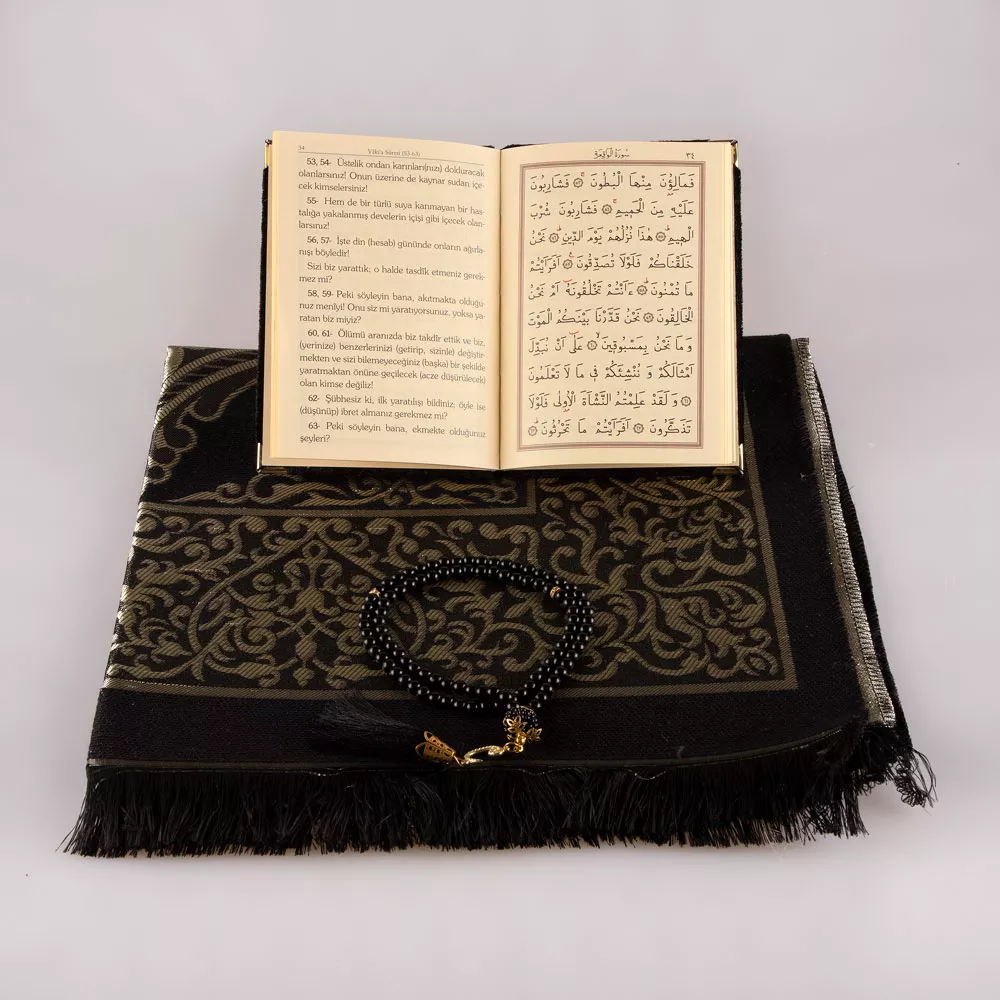 34
Vâkı'a Sûresi (53-63)
53, 54- Üstelik ondan karınları(nızı) dolduracak
olanlarsınız! Onun üzerine de kaynar sudan içe-
cek kimselersiniz!
55- Hem de bir türlü suya kanmayan bir has-
talığa yakalanmış develerin içişi gibi içecek olan-
larsınız!
56, 57- İşte din (hesab) gününde onların ağırla-
nışı böyledir!
Sizi biz yarattık; o halde tasdîk etmeniz gerek-
mez mi?
58, 59- Peki söyleyin bana, akıtmakta olduğu-
nuz menîyi! Onu siz mi yaratıyorsunuz, yoksa ya-
ratan biz miyiz?
60, 61- Ölümü aranızda biz takdîr ettik ve biz,
(yerinize) benzerlerinizi (getirip, sizinle) değiştir-
mekten ve sizi bilemeyeceğiniz (başka) bir şekilde
yaratmaktan önüne geçilecek (acze düşürülecek)
olan kimse değiliz!
62- Şübhesiz ki, ilk yaratılışı bildiniz; öyle ise
(düşünüp) ibret almanız gerekmez mi?
63- Peki söyleyin bana, ekmekte olduğunuz
şeyleri?
سُورَةُ الْوَاقِعَةِ
٣٤
فَمَالِؤُنَ مِنْهَا الْبُطُونَ ۞ فَشَارِبُونَ
عَلَيْهِ مِنَ الْحَمِيمِ ۞ فَشَارِبُونَ شُرْبَ
الْهِيمِ ۞ هٰذَا نُزُلُهُمْ يَوْمَ الدِّينِ ۞ نَحْنُ
خَلَقْنَاكُمْ فَلَوْلَا تُصَدِّقُونَ ۞ اَفَرَاَيْتُمْ
مَا تُمْنُونَ ۞ ءَاَنْتُمْ تَخْلُقُونَهُ اَمْ نَحْنُ
الْخَالِقُونَ ۞ نَحْنُ قَدَّرْنَا بَيْنَكُمُ الْمَوْتَ
وَمَا نَحْنُ بِمَسْبُوقِينَ ۞ عَلٰى اَنْ نُبَدِّلَ
اَمْثَالَكُمْ وَ نُنْشِئَكُمْ فِى مَا لَا تَعْلَمُونَ
۞ وَ لَقَدْ عَلِمْتُمُ النَّشْاَةَ الْاُولٰى فَلَوْلَا
تَذَكَّرُونَ ۞ اَفَرَاَيْتُمْ مَا تَحْرُثُونَ ۞